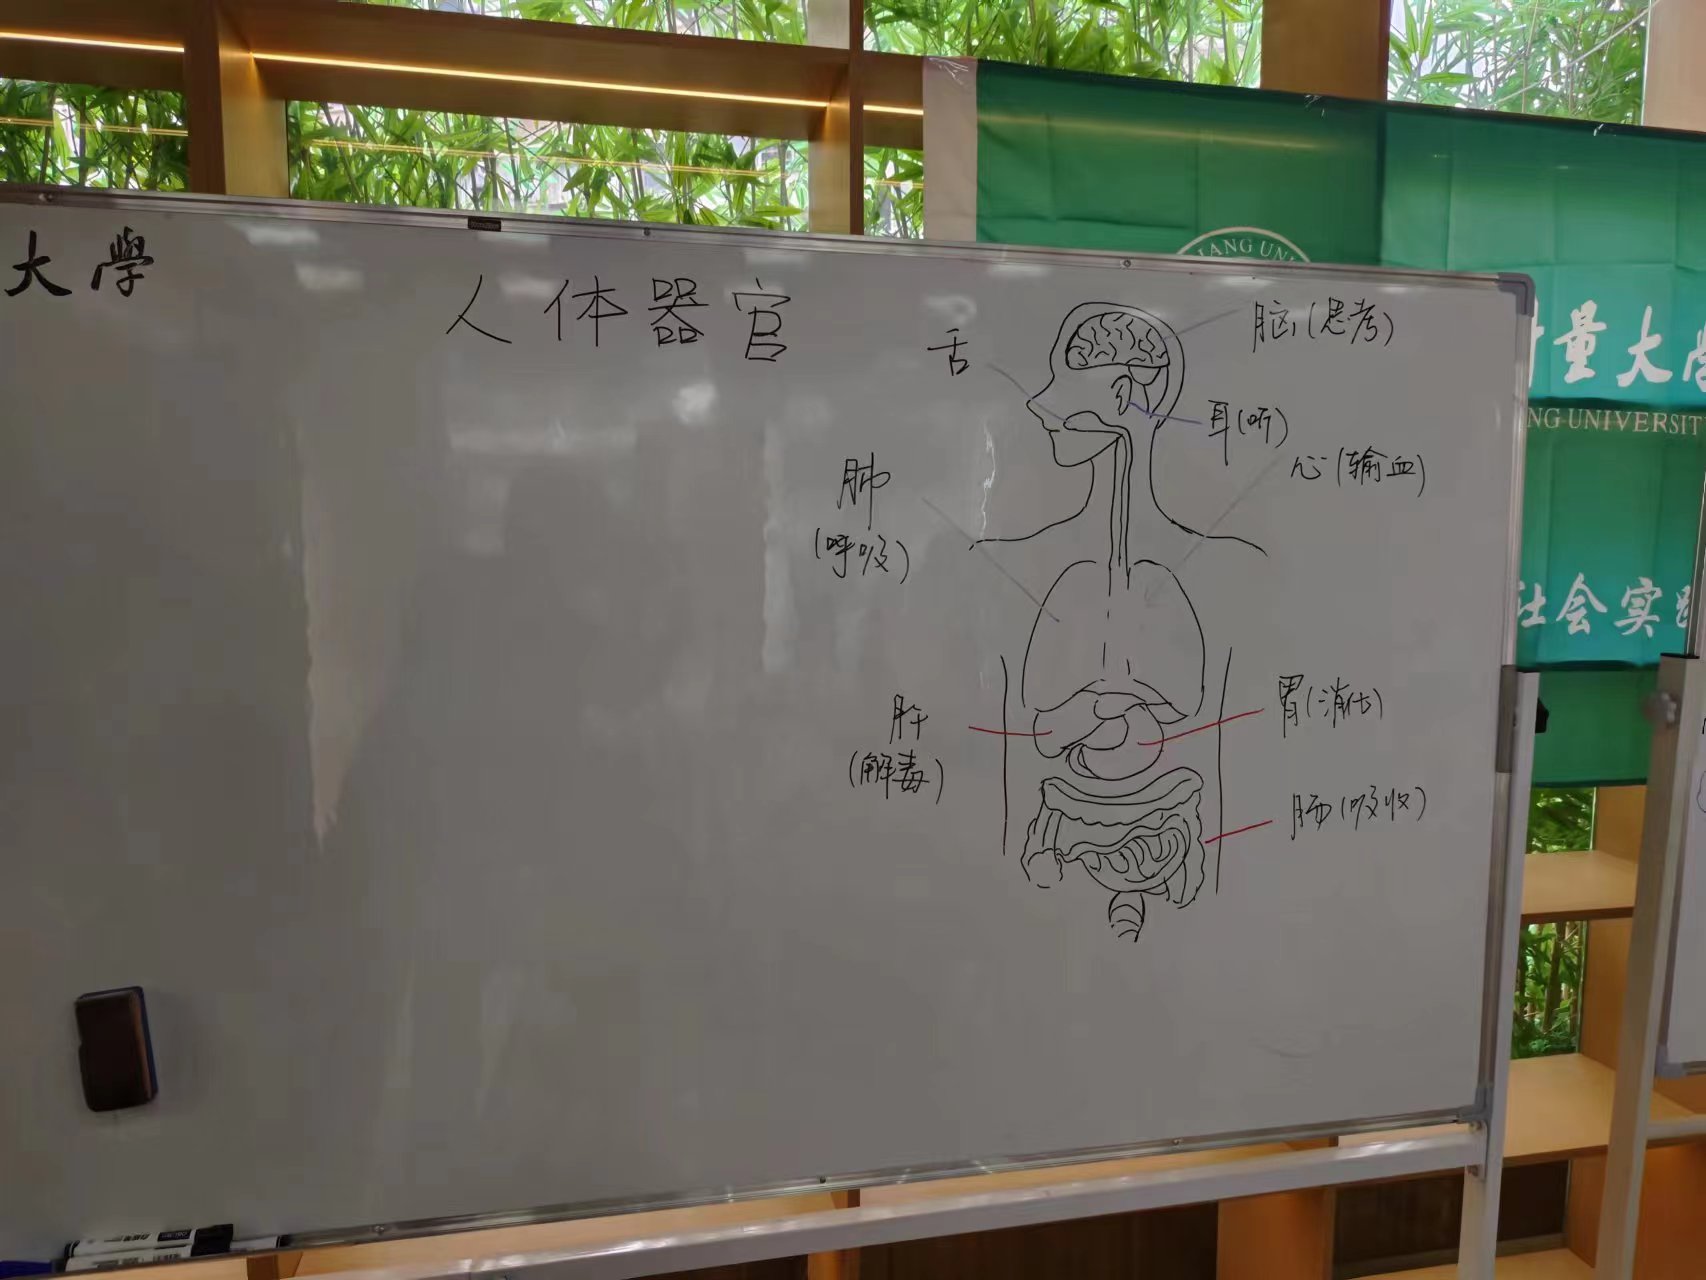 大學
人体器官
脑(思考)
舌
耳(听)
心(输血)
肺
(呼吸)
肝
(解毒)
胃(消化)
肠(吸收)
JIANG UNI
量大学
NG UNIVERSIT
社会实践